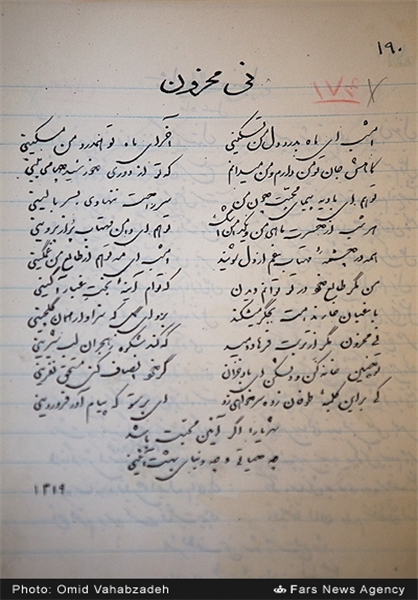 ۱۹۰
نی محزون
امشب ای ماه بدرد دل من تسکینی آخر ای ماه تو همدرد من مسکینی
کاهش جان تو من دارم و من میدانم که تو از دوری خورشید چها می بینی
تو هم ای بادیه پیمای محبت چون من سر راحت ننهادی بسر بالینی
هر شب از حسرت ماهی من و یکدامن اشک تو هم ای دامن مهتاب پر از پروینی
همه در چشمهٔ مهتاب غم از دل شویند امشب ای مه تو هم از طالع من غمگینی
من مگر طالع خود در تو توانم دیدن که توام آینهٔ بخت غبار آگینی
باغبان خار ندامت بجگر میشکند برو ای گل که سزاوار همان گلچینی
نی محزون مگر از تربت فرهاد دمید که کند شکوه ز هجران لب شیرینی
تو چنین خانه کن و دلشکن ای باد خزان گر خود انصاف کنی مستحق نفرینی
کی بر این کلبهٔ طوفان زده سر خواهی زد ای پرستو که پیام آور فروردینی
شهریارا اگر آیین محبت باشد
چه حیاتی و چه دنیای بهشت آیینی
۱۳۱۹
Photo: Omid Vahabzadeh Fars News Agency